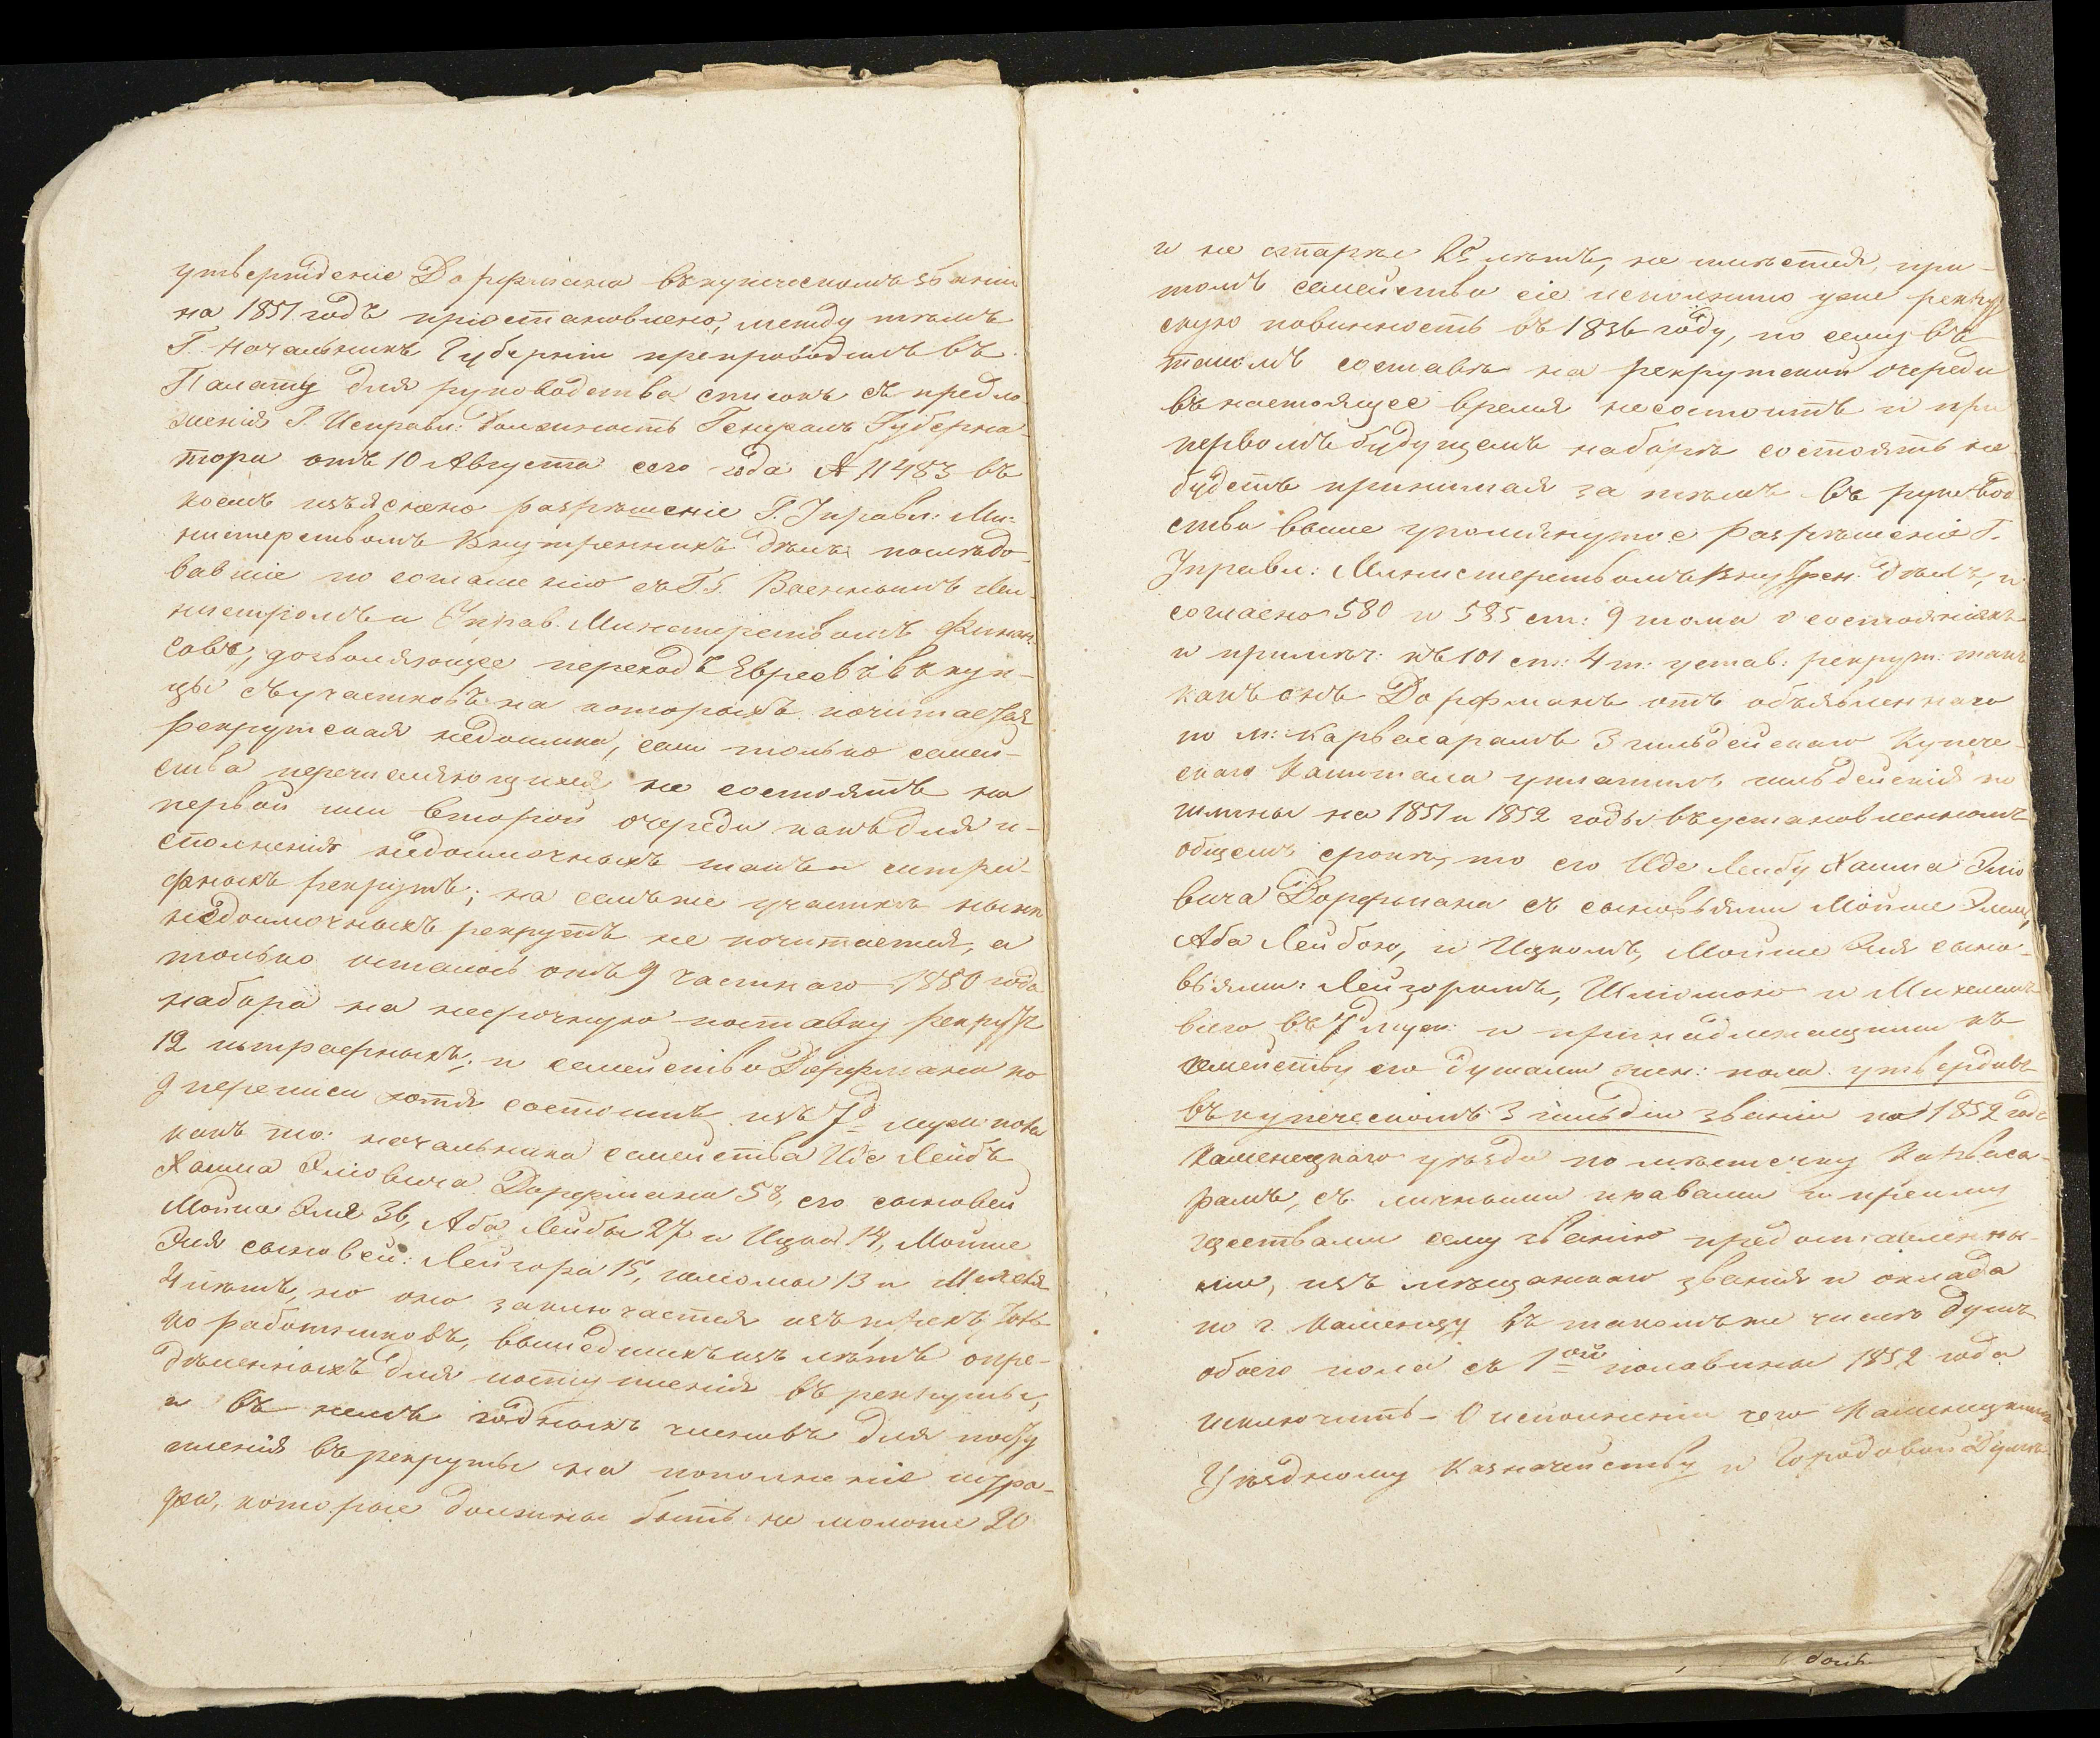 утвержденіе Дорфмана въ купеческомъ званіи
на 1851 годъ пріостановлено, между тѣмъ
Г. Начальникъ Губерніи препроводилъ въ
Палату для руководства списокъ съ предло
женія Г. Исправл: Должность Генералъ Губерна-
тора отъ 10 Августа сего года № 11483 въ
коемъ изъяснено разрѣшеніе Г. Управл: Ми-
нистерствомъ Внутреннихъ дѣлъ послѣдо
вавшіе по соглашенію съ Г.Г. Военнымъ Ми-
нистромъ и Управ. Министерствомъ Финан
совъ, дозволяющее переходъ Евреевъ въ куп-
цы съ участковъ на которыхъ почитается
рекрутская недоимка, если только семей-
ства перечисляющихся не состоятъ на
первой или второй очереди какъ для и-
сполненія недоимочныхъ такъ и штра-
фныхъ рекрутъ; на семъ же участкѣ нынѣ
недоимочныхъ рекрутъ не почитается, а
только осталось отъ 9 частнаго 1850 года
набора на несрочную поставку рекрутъ
12 штрафныхъ; и семейство Дорфмана по
9 переписи хотя состоитъ изъ 7 д. муж: пола
какъ то: начальника семейства Иде Лейбъ
Хаима Эліовича Дорфмана 58, его сыновей
Мойше Эля 36, Аба Лейбы 27 и Ицка 14, Мойше
Эля сыновей: Лейзора 15, Шлиомы 13 и Михеля
4 лѣтъ, но оно заключается изъ трехъ толь
ко работниковъ, вышедшихъ изъ лѣтъ опре-
дѣленныхъ для поступленія въ рекруты,
и въ немъ годныхъ членовъ для посту
пленія въ рекруты на пополненіе штра-
фа, которые должны быть не моложе 20
и не старѣе лѣтъ, не имѣется, при-
томъ семейство сіе исполнило уже рекрут
скую повинность въ 1836 году, по сему въ
такомъ составѣ на рекрутской очереди
въ настоящее время не состоитъ и при
первомъ будущемъ наборѣ состоять не
будетъ принимая за тѣмъ въ руковод
ство выше упомянутое разрѣшеніе Г.
Управл: Министерствомъ Внутрен: дѣлъ, и
согласно 580 и 585 ст: 9 тома о состояніяхъ
и примѣч: къ 101 ст: 4 т: устав: рекрут: такъ
какъ онъ Дорфманъ отъ объявленнаго
по м: Карвасарамъ 3 гильдейскаго Купече-
скаго Капитала уплатилъ гильдейскія по
шлины на 1851 и 1852 годы въ установленномъ
общемъ срокѣ, то его Иде Лейбу Хаима Элио
вича Дорфмана съ сыновьями Мойше Элемъ,
Аба Лейбою, и Ицкомъ, Мойше Эля сыно-
вьями: Лейзоромъ, Шліомою и Михелемъ
всего въ 7 д. муж: и принадлежащими къ
семейству его душами жен: пола: утвердивъ
въ купеческомъ 3 гильдіи званіи на 1852 годъ
Каменецкаго уѣзда по мѣстечку Карваса-
рамъ, съ личными правами и преиму
ществами сему званію предоставленны-
ми, изъ мѣщанскаго званія и оклада
по г. Каменцу въ такомъ же числѣ душъ
обоего пола съ 1ой половины 1852 года
исключить – О исполненіи чего Каменецкимъ
Уѣздному Казначейству и Городовой Думѣ